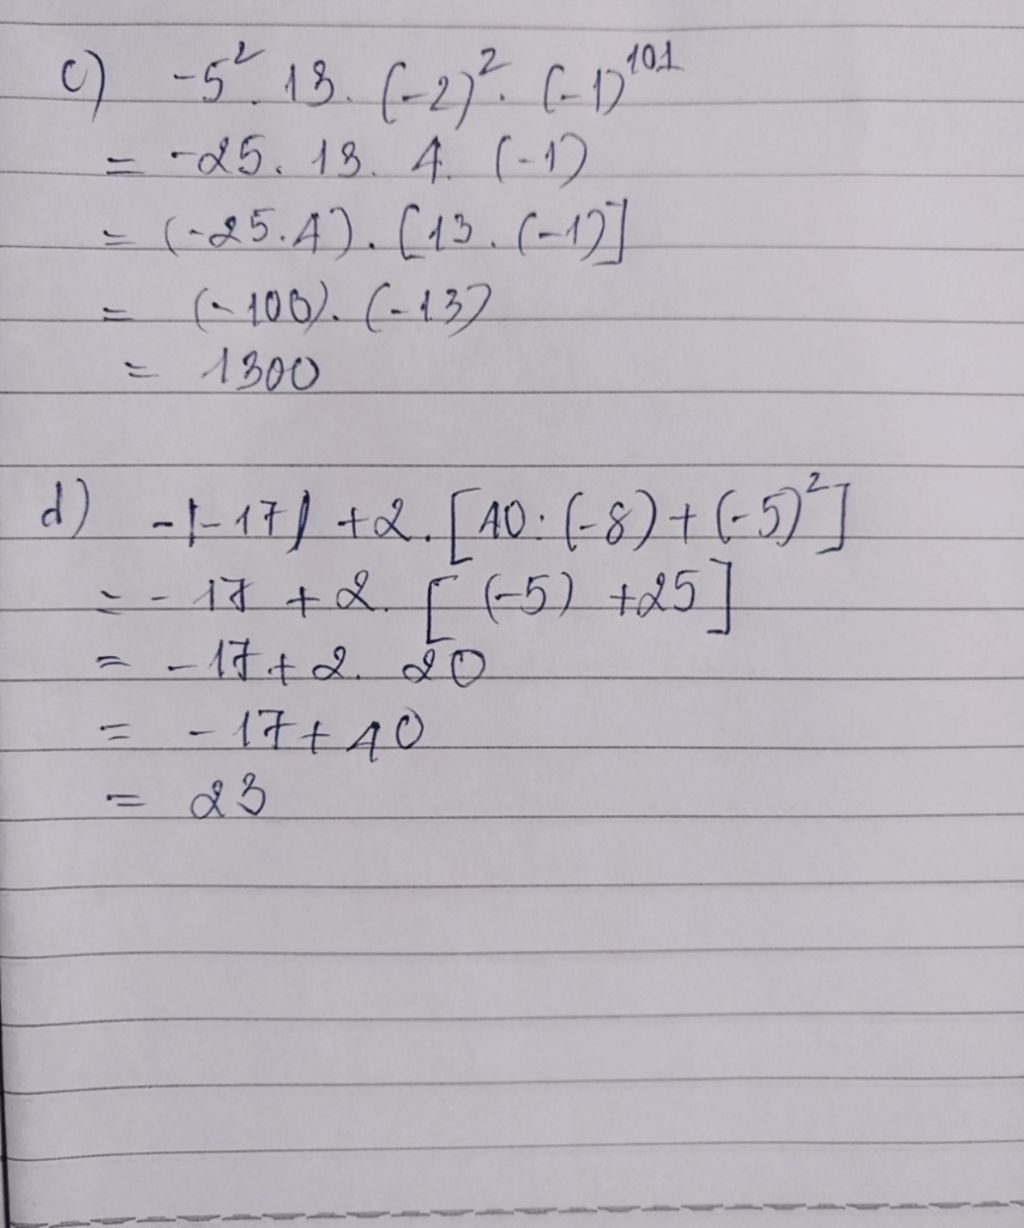 c) -5². 13. (-2)². (-1)¹⁰¹
= -25. 13. 4. (-1)
= (-25.4). [13. (-1)]
= (-100). (-13)
= 1300
d) -|-17| + 2. [40: (-8) + (-5)²]
= - 17 + 2. [(-5) + 25]
= - 17 + 2. 20
= - 17 + 40
= 23